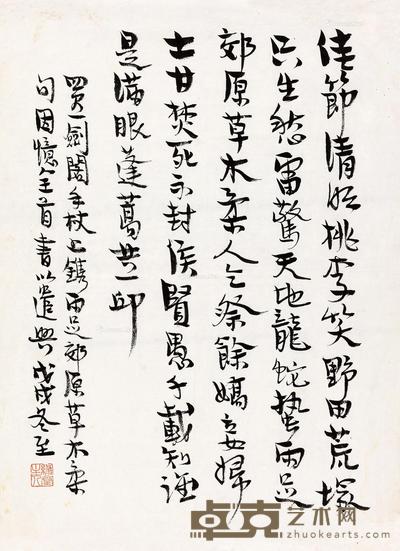 佳節清明桃李笑野田荒塚
只生愁雷驚天地龍蛇蟄雨足
郊原草木柔人乞祭餘嬌妾婦
士甘焚死不封侯賢愚千載知誰
是滿眼蓬蒿共一邱
買一劍閣手杖上鐫雨足郊原草木柔
句因憶全首書以遣興戊戌冬至
卓克艺术网
zhuokearts.com